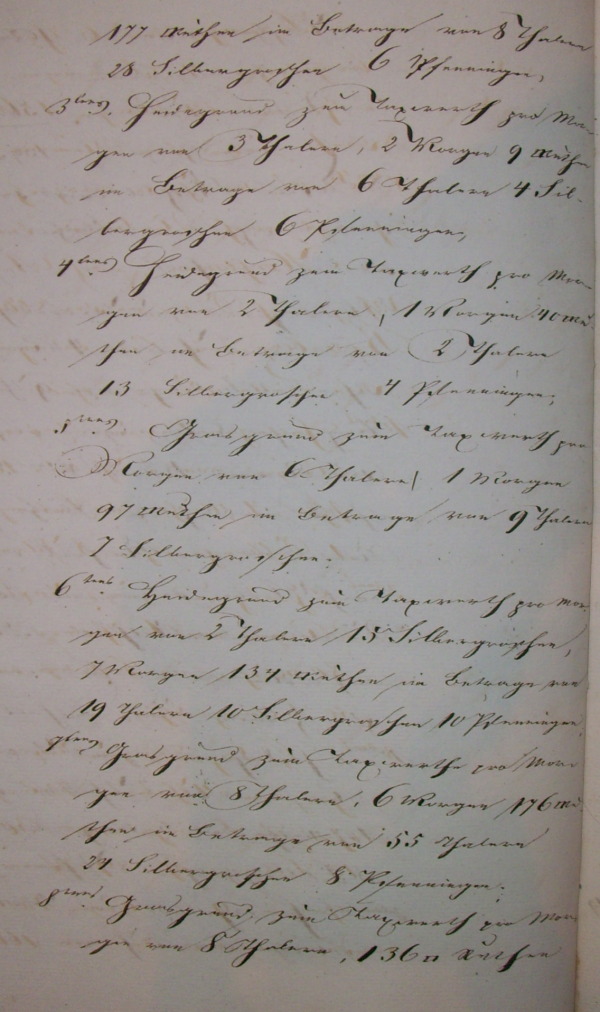 177 Ruthen im Betrage von 8 Thalern
28 Silbergroschen 6 Pfenningen,
3tens, Heidegrund zum Taxwerth pro Mor-
gen von 3 Thalern, 2 Morgen 9 Ruthen
im Betrage von 6 Thalern 4 Sil-
bergroschen 6 Pfenningen,
4tens, Heidegrund zum Taxwerth pro Mor-
gen von 2 Thalern, 1 Morgen 40 Ru-
then im Betrage von 2 Thalern
13 Silbergroschen 4 Pfenningen;
5tens, Grasgrund zum Taxwerth pro
Morgen von 6 Thalern, 1 Morgen
97 Ruthen im Betrage von 9 Thalern
7 Silbergroschen.
6tens Heidegrund zum Taxwerth pro Mor-
gen von 2 Thalern 15 Silbergroschen,
7 Morgen 134 Ruthen im Betrage von
19 Thalern 10 Silbergroschen 10 Pfenningen,
7tens, Grasgrund zum Taxwerthe pro Mor-
gen von 8 Thalern, 6 Morgen 176 Ru-
then im Betrage von 55 Thalern
24 Silbergroschen 8 Pfenningen;
8tens Grasgrund zum Taxwerth pro Mor-
gen von 8 Thalern, 136 □ Ruthen